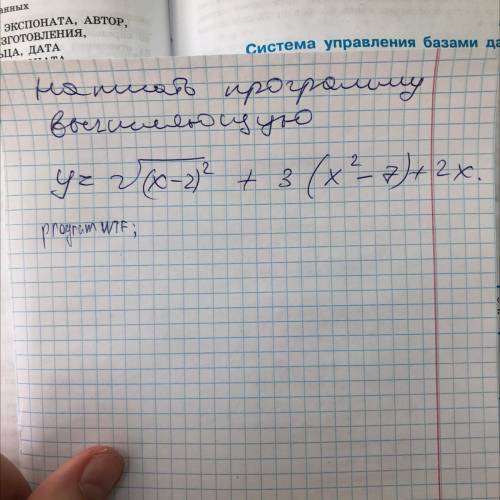 анных
ЭКСПОНАТА, АВТОР,
ЗГОТОВЛЕНИЯ,
ЬЦА, ДАТА
Система управления базами да
Написать программу
вычисляющую
y = 2√(x-2)² + 3(x² - 7) + 2x.
program WTF;